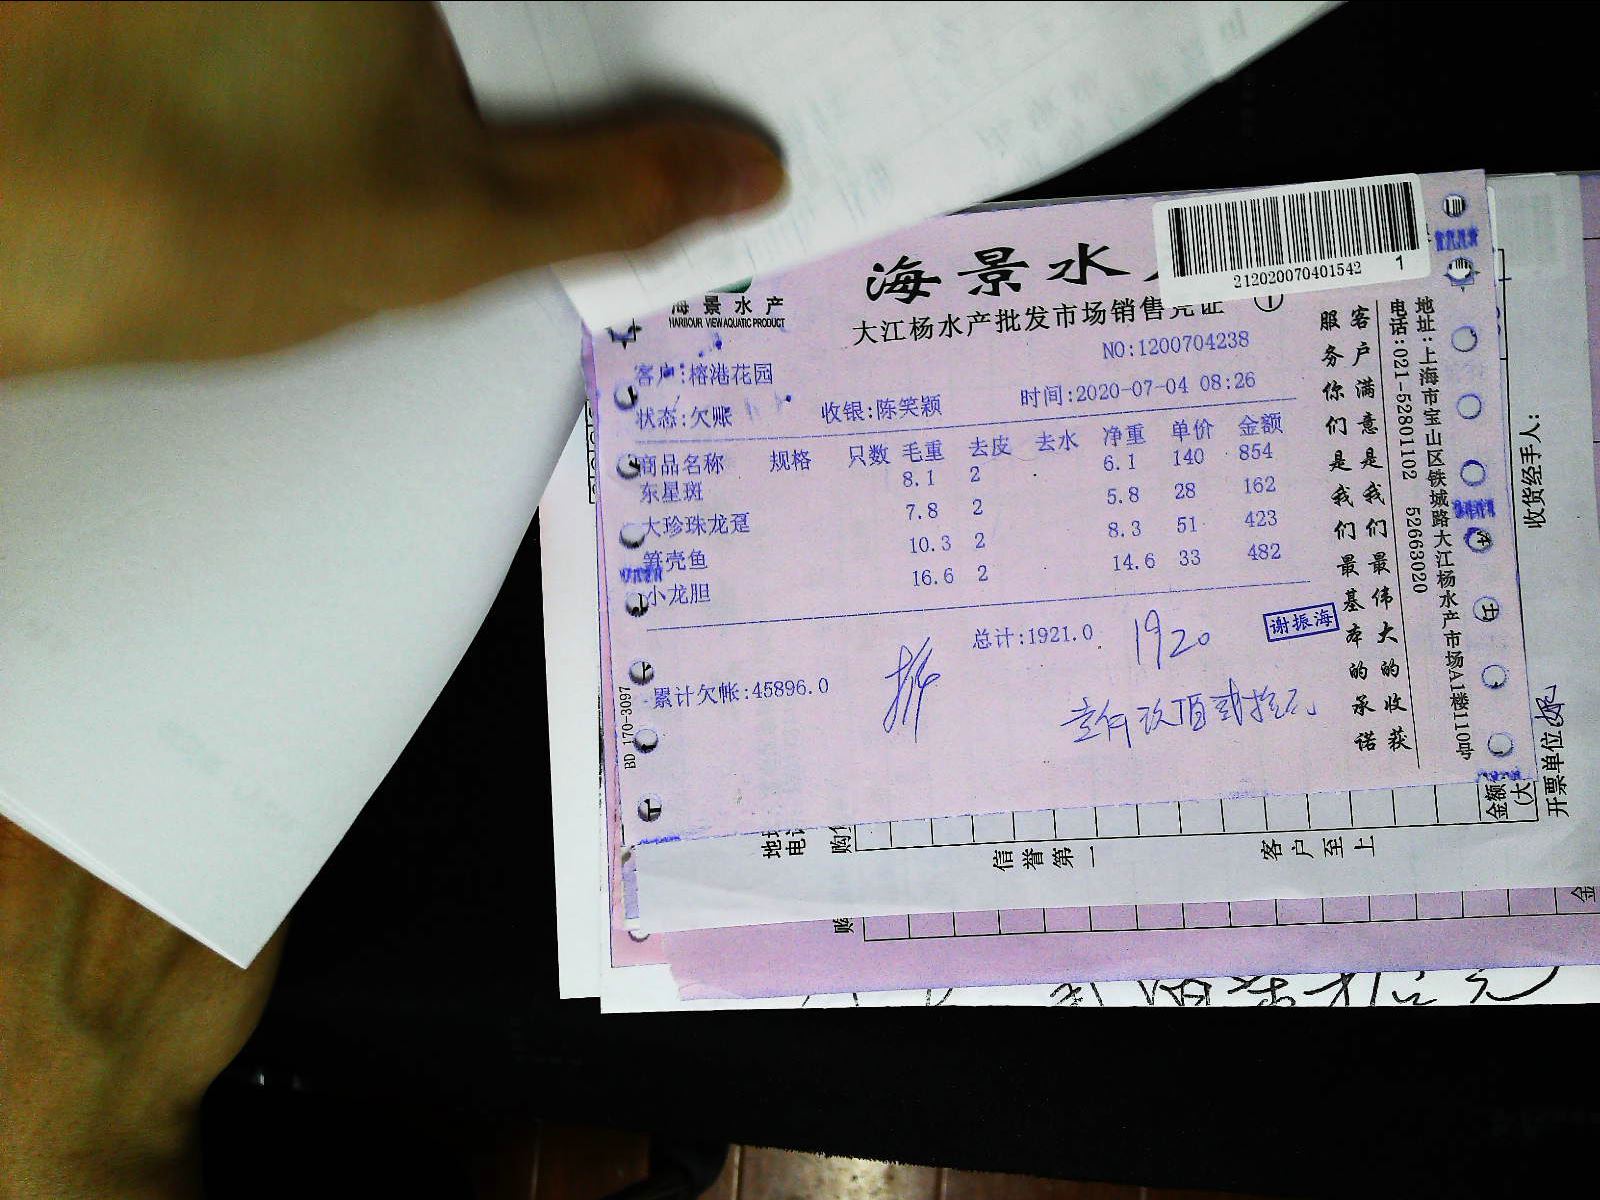 212020070401542 1
海景水
海景水产
HARBOUR VIEW AQUATIC PRODUCT
大江杨水产批发市场销售凭证 ①
NO:1200704238
客户:榕港花园
状态:欠账 收银:陈笑颖 时间:2020-07-04 08:26
商品名称 规格 只数 毛重 去皮 去水 净重 单价 金额
东星斑 8.1 2 6.1 140 854
大珍珠龙趸 7.8 2 5.8 28 162
笋壳鱼 10.3 2 8.3 51 423
小龙胆 16.6 2 14.6 33 482
总计:1921.0 1920
谢振海
累计欠帐:45896.0
壹仟玖佰贰拾元
BD 170-3097
客户满意是我们最伟大的收获
服务你们是我们最基本的承诺
地址:上海市宝山区铁城路大江杨水产市场A1楼110号
电话:021-52801102 52663020
收货经手人:
开票单位
金额
(大
地
电
购
信誉第一
客户至上
购
金